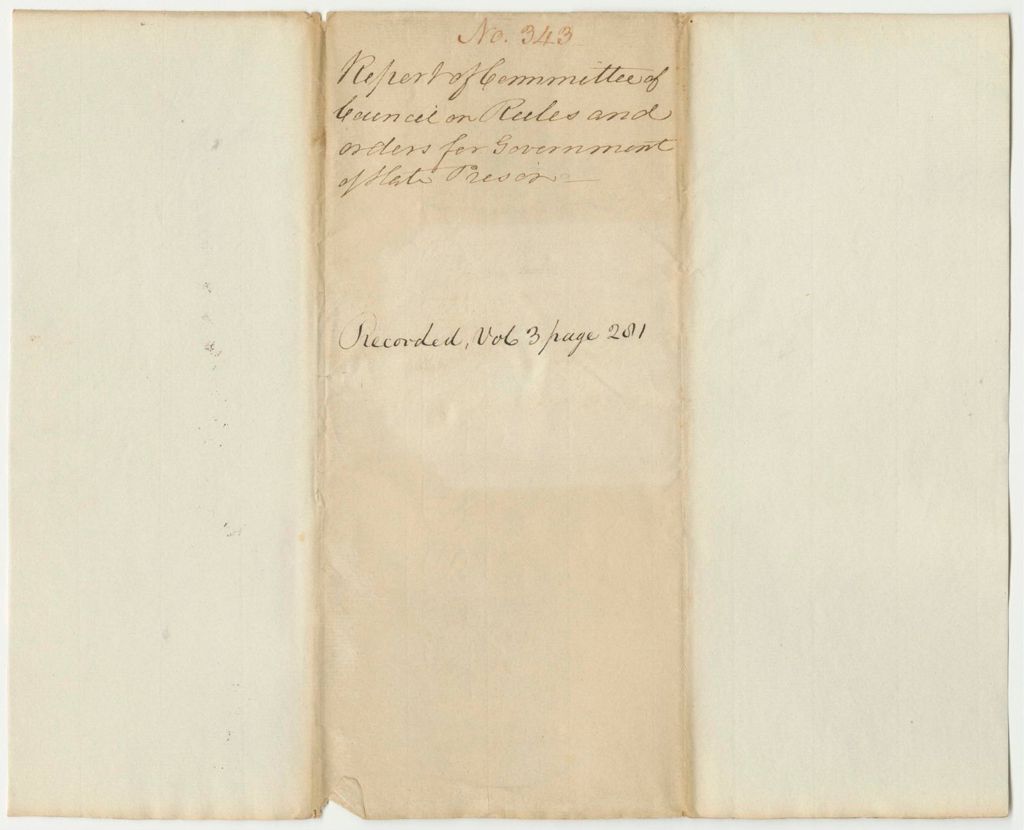 No. 343
Report of Committee of
Council on Rules and
orders for Government
of State Preson
Recorded, Vol 3 page 281